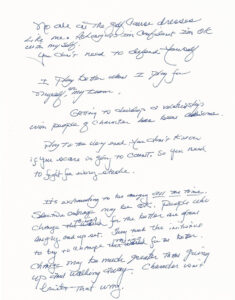 No one on the Golf Course dresses
Like me. Acknowledgment Confident I'm OK
with myself.
You don't need to defend yourself
I Play better when I Play for
Myself, My team.
Getting to develop a relationship
with people of Character have been
Play to the very end. You don't know
if your score is going to Count. So you need
to fight for every stroke.
It's exhausting to be angry all the time.
may be OK. People who
change for the better are good
angry and upset. They had the initiative
to try to change for the better.
Change may be much greater than giving
up and walking away. Character isn't
built that way.